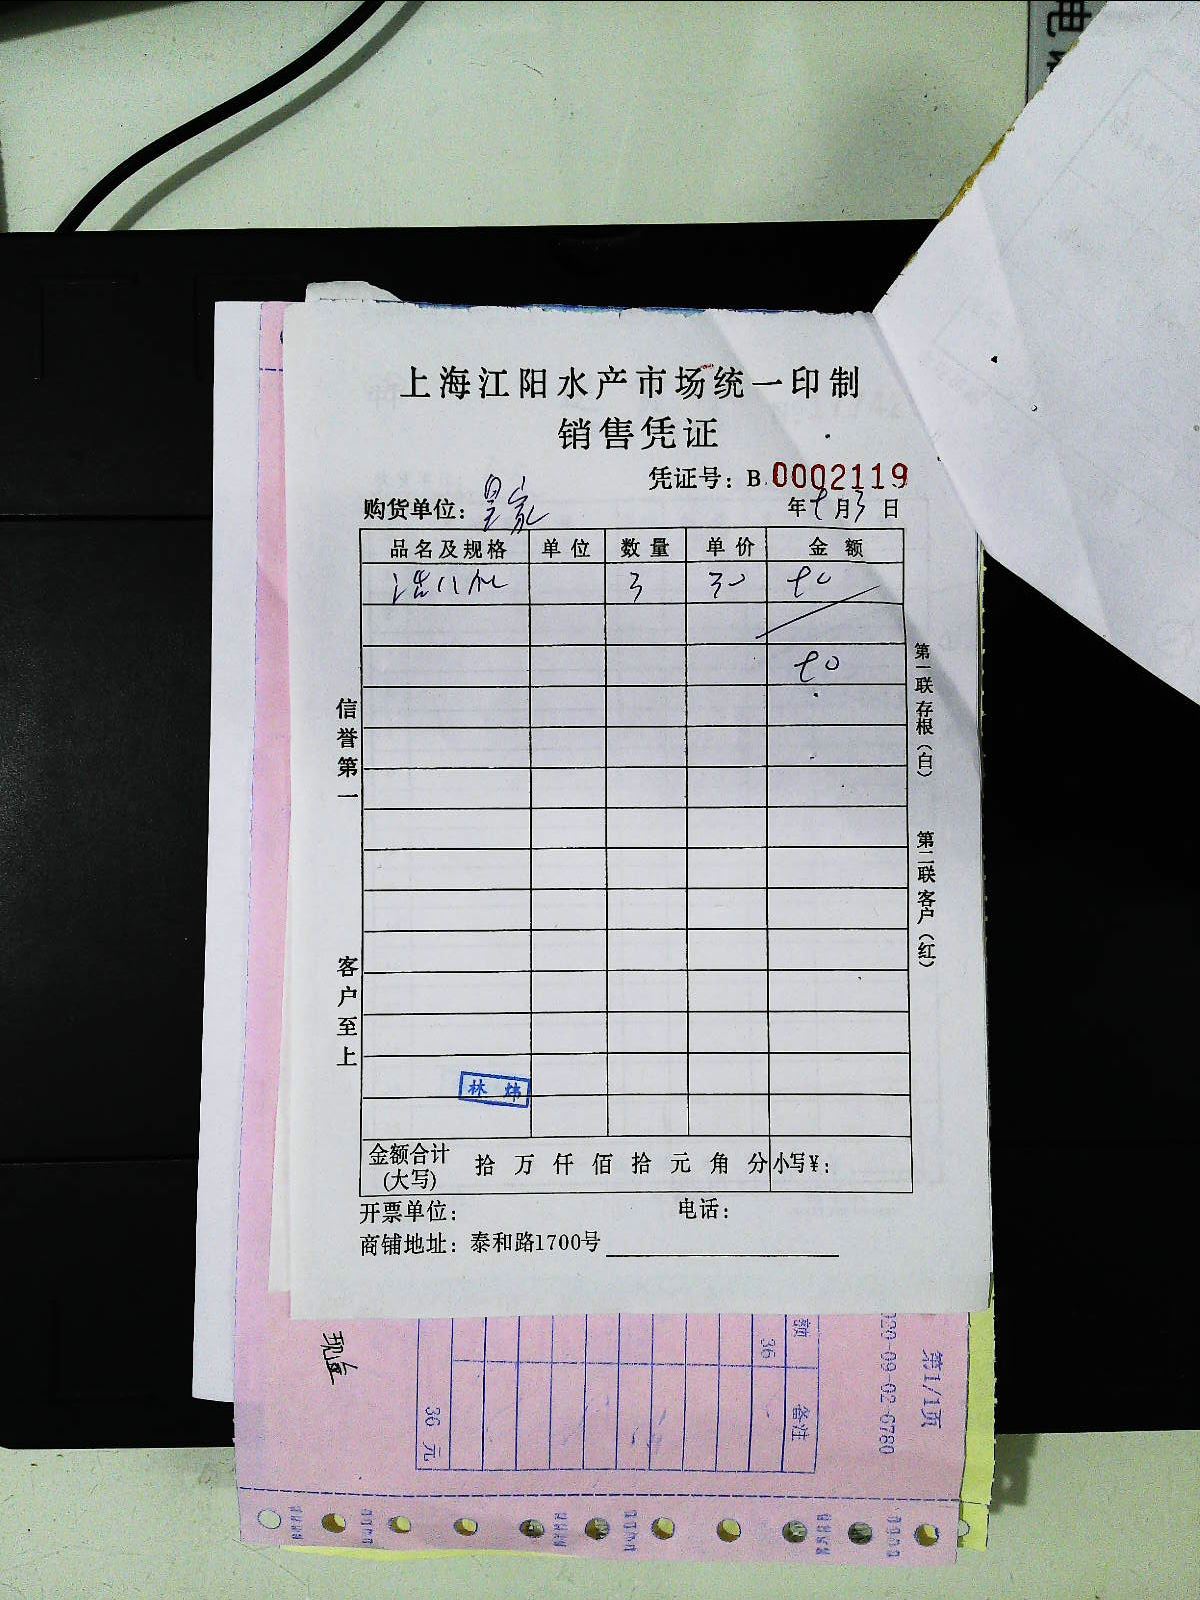 上海江阳水产市场统一印制
销售凭证
凭证号：B 0002119
购货单位：皇家 年9月3日
品名及规格 单位 数量 单价 金额
3 30 90
90
信誉第一
客户至上
第一联存根（白）
第二联客户（红）
林炜
金额合计(大写) 拾 万 仟 佰 拾 元 角 分 小写¥：
开票单位： 电话：
商铺地址：泰和路1700号
现金
额 备注
36
36 元
020-09-02-6780
第1/1页
电